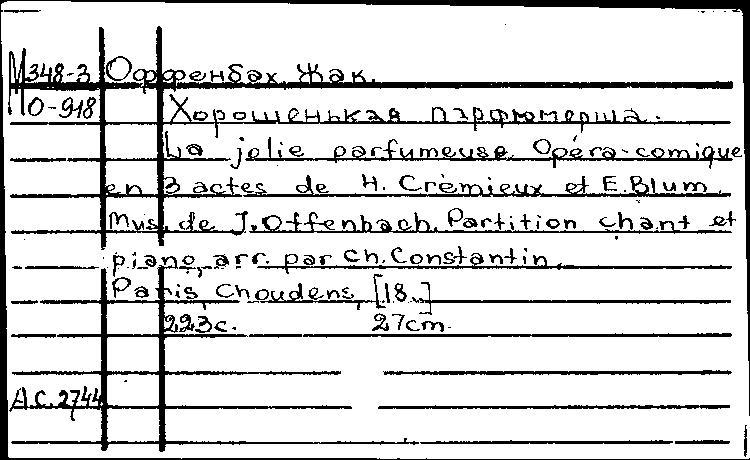 М348-3 Оффенбах, Жак.
О-918 Хорошенькая парфюмерша.
La jolie parfumeuse. Opéra-comique
en 3 actes de H. Crémieux et E. Blum.
Mus. de J. Offenbach. Partition chant et
piano, arr. par Ch. Constantin.
Paris, Choudens, [18..]
223с. 27cm.
А.С.2744